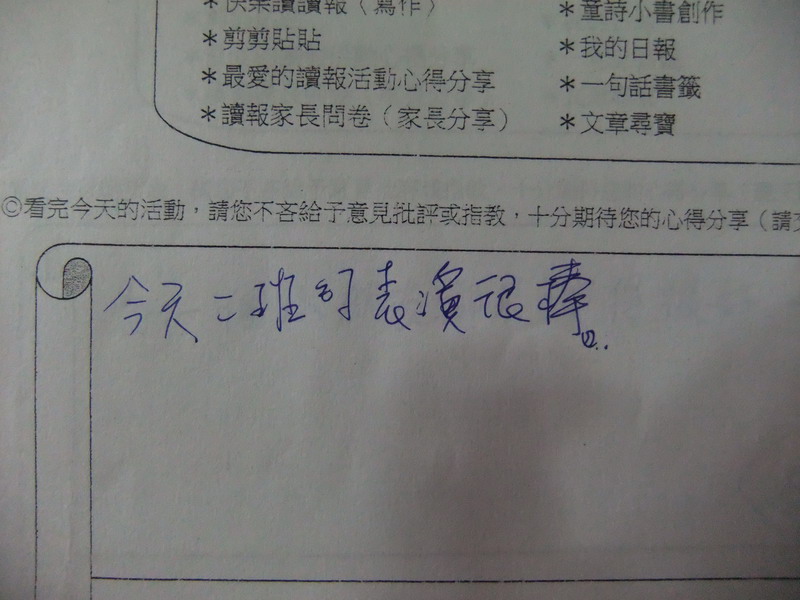 ＊快樂讀讀報（寫作）　＊童詩小書創作
＊剪剪貼貼　＊我的日報
＊最愛的讀報活動心得分享　＊一句話書籤
＊讀報家長問卷（家長分享）　＊文章尋寶
◎看完今天的活動，請您不吝給予意見批評或指教，十分期待您的心得分享（請
今天二班的表演很棒